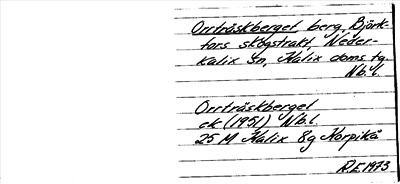 Orrträskberget, berg, Björk-
fors skogstrakt, Neder-
kalix sn, Kalix doms. tg.
Nb. l.
Orrträskberget
ek (1951) Nb. l.
25 M Kalix 8g Norpikå
R.E. 1973